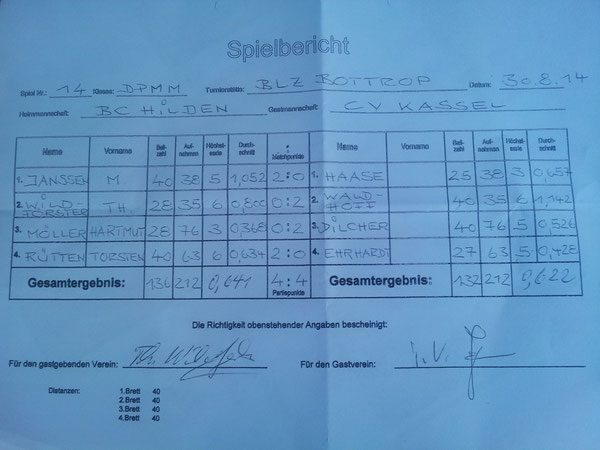 Spielbericht
Spiel Nr.: 14 Klasse: DPMM Turnierstätte: BLZ BOTTROP Datum: 30.8.14
Heimmannschaft: BC HILDEN Gastmannschaft: CV KASSEL
Name Vorname Ball-zahl Auf-nahmen Höchst-serie Durch-schnitt : Matchpunkte Name Vorname Ball-zahl Auf-nahmen Höchst-serie Durch-schnitt
1. JANSSEN M 40 38 5 1,052 2:0 1. HAASE 25 38 3 0,657
2. WILD-FÖRSTER TH. 28 35 6 0,800 0:2 2. WALD-HOFF 40 35 6 1,142
3. MÖLLER HARTMUT 28 76 3 0,368 0:2 3. DILCHER 40 76 5 0,526
4. RÜTTEN TORSTEN 40 63 6 0,634 2:0 4. EHRHARDT 27 63 5 0,428
Gesamtergebnis: 136 212 0,641 4:4 Partiepunkte Gesamtergebnis: 132 212 0,622
Die Richtigkeit obenstehender Angaben bescheinigt:
Für den gastgebenden Verein: Für den Gastverein: i.V.
Distanzen: 1.Brett 40
2.Brett 40
3.Brett 40
4.Brett 40